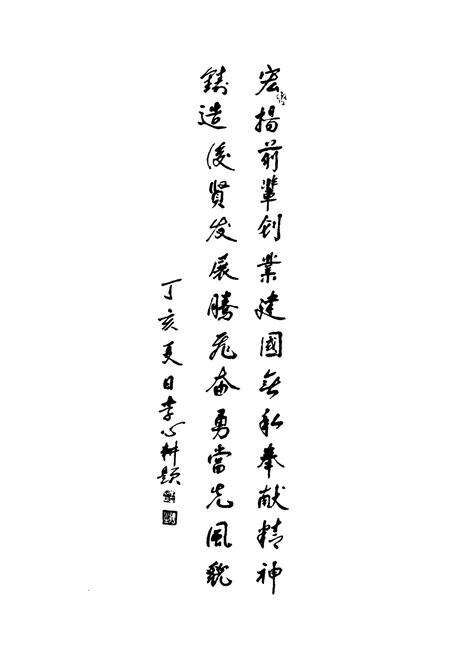 宏揚前輩創業建國無私奉献精神
鑄造後賢发展騰飛奋勇當先風貌
丁亥夏日李心耕題